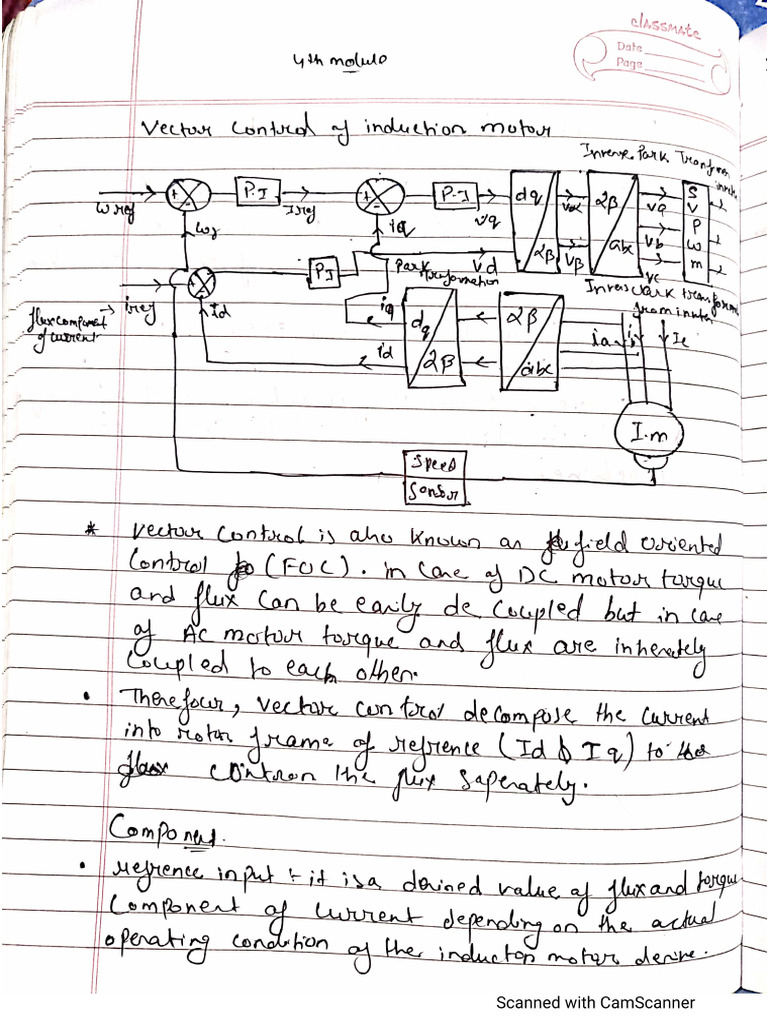 classmate
Date
Page
4th module
Vector Control of induction motor
Inverse Park Transform
P.I
Iref
P-I
vq
dq
αβ
vα
vβ
αβ
abc
va
vb
vc
S
V
P
W
M
ωref
ωr
iq
vd
PI
Park
Transformation
iref
Id
flux component
of current
iq
id
dq
αβ
αβ
abc
ia
Ic
I.m
Speed
Sensor
* Vector Control is also known as field oriented
Control (FOC). in case of DC motor torque
and flux can be easily de coupled but in case
of AC motor torque and flux are inherately
Coupled to each other.
• Therefour, vector control decompose the current
into rotor frame of refrence (Id & Iq) to
contron the flux saperately.
Component.
• refrence input :- it is a desired value of flux and torque
Component of current depending on the actual
operating condition of the induction motor derive.
Scanned with CamScanner